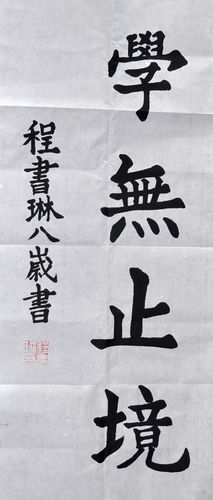 學無止境
程書琳八歲書